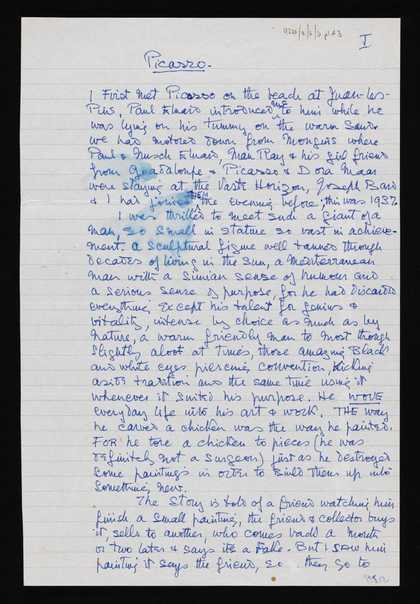 I
Picasso.
I First met Picasso on the beach at Juan-les-
Pins, Paul Eluard introduced me to him while he
was lying on his tummy on the warm sand.
we had motored down from Mougins where
Paul & Nusch Eluard, Man Ray & his girl friend
from Guadaloupe & Picasso & Dora Maar
were staying at the Vaste Horizon, Joseph Bard
& I had joined them the evening before; this was 1937
I was thrilled to meet such a giant of a
man, so small in stature so vast in achieve-
ment. a sculptural figure well tanned through
decades of living in the sun, a Mediterranean
man with a simian sense of humour and
a serious sense of purpose, for he had discarded
everything except his talent for genius &
vitality, intense by choice as much as by
nature, a warm friendly man to most though
slightly aloof at times, those amazing Black
and white eyes piercing convention kicking
aside tradition and the same time using it
whenever it suited his purpose. He wove
everyday life into his art & work. The way
he carved a chicken was the way he painted.
FOR he tore a chicken to pieces (he was
definitely not a surgeon) just as he destroyed
some paintings in order to build them up into
something new.
The Story is told of a friend watching him
finish a small painting, the friend & collector buys
it, sells to another, who comes back a month
or two later & says its a fake. But I saw him
painting it says the friend, so they go to